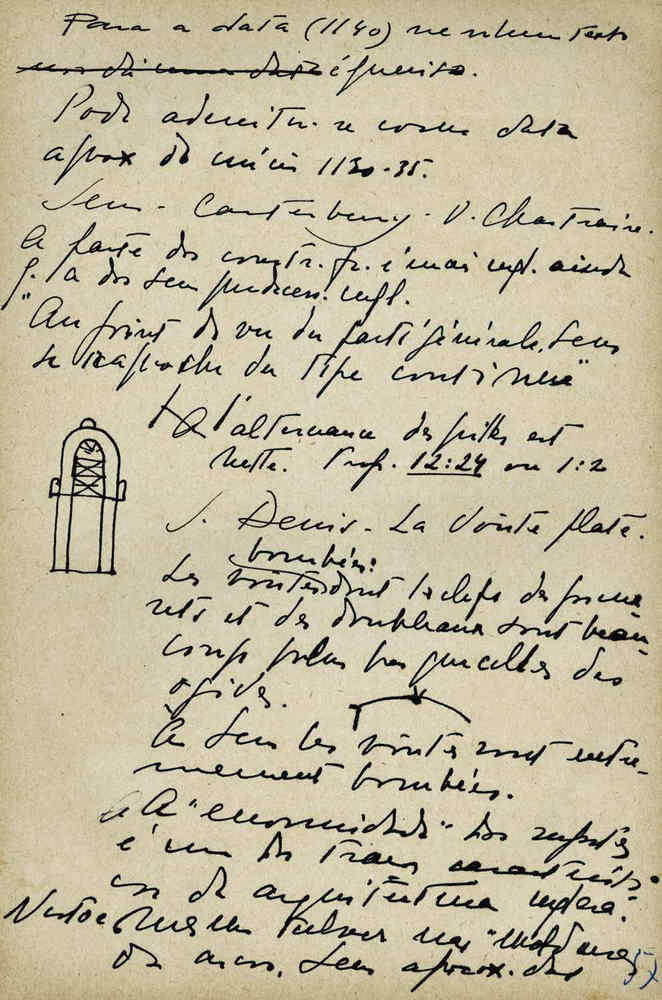 Para a data (1140) nenhum texto
é preciso.
Pode admitir-se como data
aprox de início 1130-35.
Sens - Canterbury - V. Chartraire.
A parte dos constr. fr. é mais ingl. ainda
q. a dos seus ingl.
"Au point de vue du parti générale, Sens
se rapproche du type continu"
l'alternance des piles est
nette. Prof. 12:24 ou 1:2
S. Denis - La voûte plate.
bombées:
Les voûtes dont les clefs des forme-
rets et des doubleaux sont beau-
coup plus bas que celles des
ogives.
A Sens les voûtes sont extre-
mement bombées.
A "enormidade" dos suportes
é um dos traços
cos da arquitetura inglesa.
mesmo talvez nas "molduras
do arco, Sens aprox. das
57